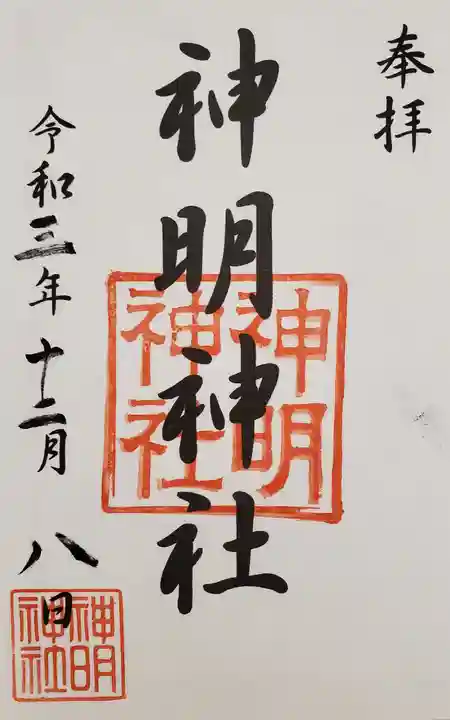 奉拝
神明神社
神明
神社
令和三年十二月八日
神明
神社